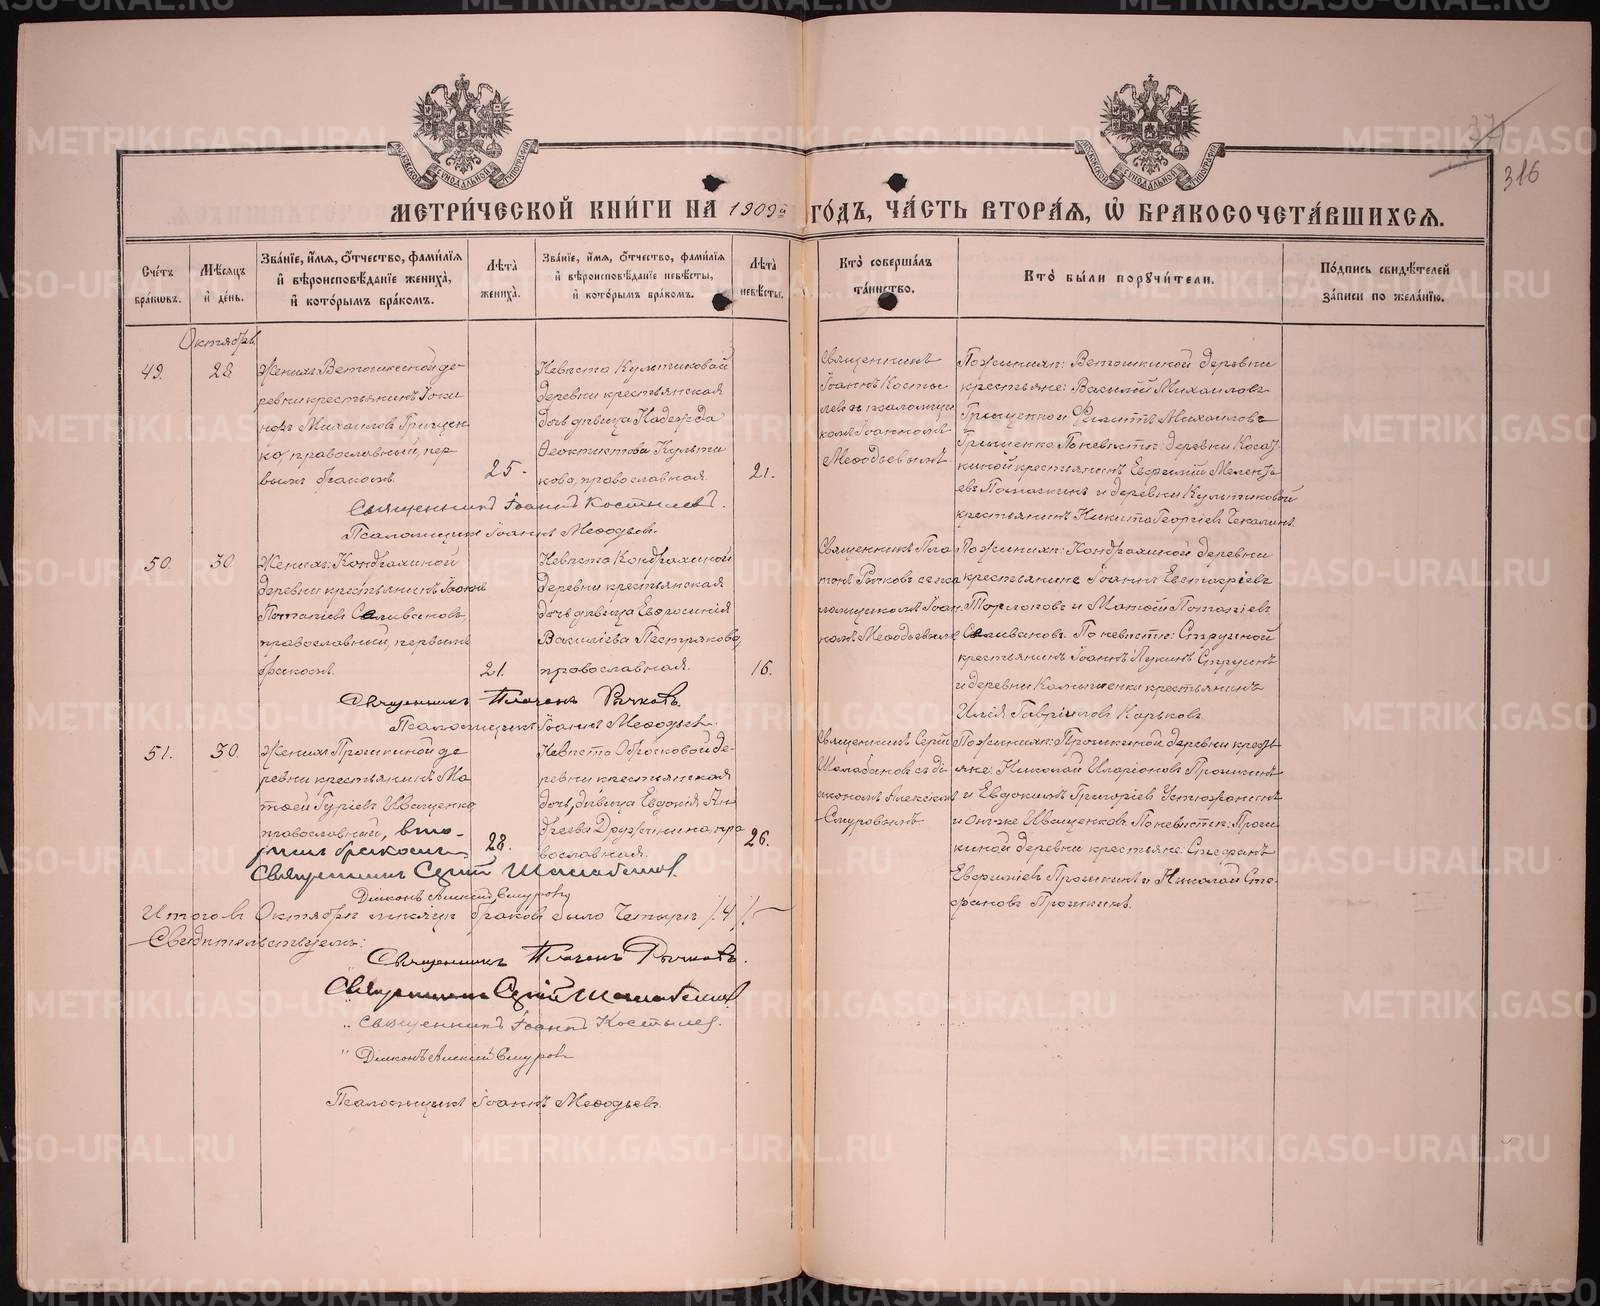 МЕТРИ́ЧЕСКОЙ КНИ́ГИ НА 1909й ГО́ДЪ, ЧА́СТЬ ВТОРА́Я, Ѡ БРАКОСОЧЕТА́ВШИХСЯ.
316
Сче́тъ бра́ковъ.
Мѣ́сяцъ и де́нь.
Зва́ніе, и́мя, о́тчество, фами́лія и вѣроисповѣ́даніе жениха̀, и кото́рымъ бра́комъ.
Лѣ́та жениха̀.
Зва́ніе, и́мя, о́тчество, фами́лія и вѣроисповѣ́даніе невѣ́сты, и кото́рымъ бра́комъ.
Лѣ́та невѣ́сты.
Кто̀ соверша́лъ та́инство.
Кто̀ бы́ли поручи́тели.
По́дпись свидѣ́телей за́писи по жела́нію.
Октябрь
49.
28
Женихъ: Ветошкиной де-
ревни крестьянинъ
Михаиловъ Грищен-
ко, православный, пер-
вымъ бракомъ
25.
Невѣста Культиковой
деревни крестьянская
дочь дѣвица Надежда
Ѳеоктистова Культи
кова, православная
21.
Священникъ
Іоаннъ Косты
левъ съ псаломщи
комъ Іоанномъ
Меѳодьевымъ
По женихѣ: Ветошкиной деревни
крестьяне: Василій Михаиловъ
Грищенко и Филиппъ Михаиловъ
Грищенко. По невѣстѣ: деревни
киной крестьянинъ Евфимій Мелентъ
евъ и деревни Культиковой
крестьянинъ Никита Георгіевъ Чекалинъ.
Священникъ Іоаннъ Костылевъ.
Псаломщикъ Іоаннъ Меѳодьевъ.
50.
30
Женихъ: Кондрахиной
деревни крестьянинъ Іоаннъ
Потапіевъ Селивановъ,
православный, первымъ
бракомъ.
21.
Невѣста Кондрахиной
деревни крестьянская
дочь дѣвица Евфросинія
Василіева Пестрякова,
православная.
16.
Священникъ Пла
тонъ Рычковъ съ пса
ломщикомъ Іоан
номъ Меѳодьевымъ
По женихѣ: Кондрахиной деревни
крестьянине Іоаннъ Евстагріевъ
и Матѳей Потапіевъ
Селивановъ. По невѣстѣ:
крестьянинъ Іоаннъ Лукинъ
и деревни Камышенки крестьянинъ
Илія Гавріиловъ Карьковъ.
Священникъ Платонъ Рычковъ.
Псаломщикъ Іоаннъ Меѳодьевъ.
51.
30.
Женихъ: Прошкиной де
ревни крестьянинъ Ма
тѳей Гуріевъ Иващенко
православный, вто-
рымъ бракомъ
28.
Невѣста Обросковой де-
ревни крестьянская
дочь, дѣвица Евдокія Ан
дреева Дружинина, пра
вославная.
26.
Священникъ Сергій
Шалабановъ съ ді
акономъ Алексіемъ
Смуровымъ
По женихѣ: Прошкиной деревни кресть
яне: Николай Иларіоновъ Прошкинъ
и Евдокимъ Григоріевъ Устюжанинъ
и онъ-же Иващенковъ. По невѣстѣ: Прош
киной деревни крестьяне: Стефанъ
Евфиміевъ Прошкинъ и Николай Сте
фановъ Прошкинъ.
Священникъ Сергій Шалабановъ
Діаконъ Алексій Смуровъ
Итого въ Октябрѣ мѣсяцѣ браковъ было четыре /4/.
Свидѣтельствуемъ:
Священникъ Платонъ Рычковъ.
Священникъ Сергій Шалабановъ
" Священникъ Іоаннъ Костылевъ.
" Діаконъ Алексій Смуровъ
Псаломщикъ Іоаннъ Меѳодьевъ.
METRIKI.GASO-URAL.RU